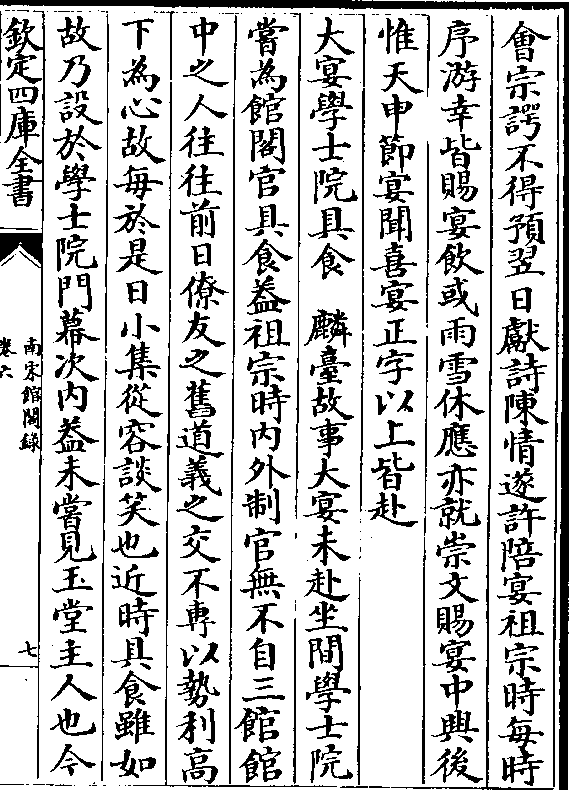 會宗諤不得預翌日獻詩陳情遂許陪宴祖宗時每時
序游幸皆賜宴飲或雨雪休應亦就崇文賜宴中興後
惟天申節宴聞喜宴正字以上皆赴
大宴學士院具食　麟臺故事大宴未赴坐間學士院
嘗為館閣官具食葢祖宗時内外制官無不自三館館
中之人往往前日僚友之舊道義之交不專以勢利高
下為心故每於是日小集從容談笑也近時具食雖如
故乃設於學士院門幕次内葢未嘗見玉堂主人也今
欽定四庫全書
南宋館閣錄
卷六
七